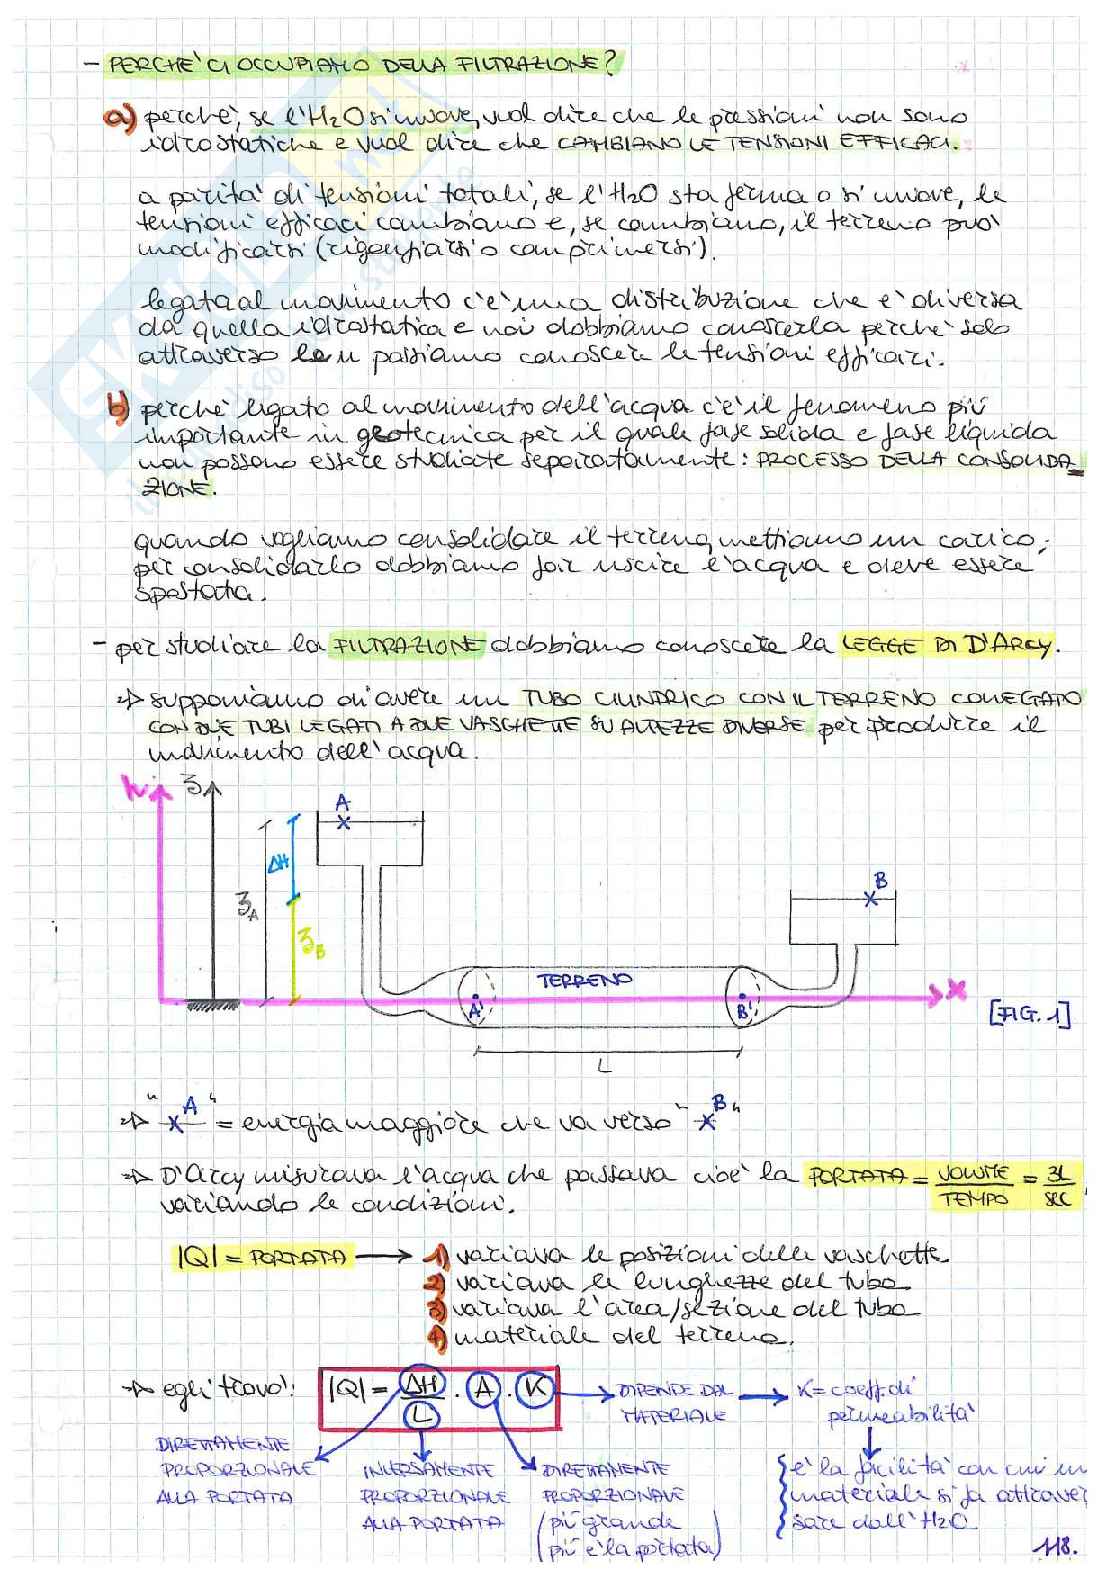 - PERCHE' CI OCCUPIAMO DELLA FILTRAZIONE?
a) perchè, se l'H2O si muove, vuol dire che le pressioni non sono
idrostatiche e vuol dire che CAMBIANO LE TENSIONI EFFICACI.
a parità di tensioni totali, se l'H2O sta ferma o si muove, le
tensioni efficaci cambiano e, se cambiano, il terreno può
modificarsi (rigonfiarsi o comprimersi).
legata al movimento c'è una distribuzione che è diversa
da quella idrostatica e noi dobbiamo conoscerla perchè solo
attraverso lei possiamo conoscere le tensioni efficaci.
b) perchè legato al movimento dell'acqua c'è il fenomeno più
importante in geotecnica per il quale fase solida e fase liquida
non possono essere studiate separatamente: PROCESSO DELLA CONSOLIDA
ZIONE.
quando vogliamo consolidare il terreno, mettiamo un carico;
per consolidarlo dobbiamo far uscire l'acqua e deve essere
spostata.
- per studiare la FILTRAZIONE dobbiamo conoscere la LEGGE DI D'ARCY.
=> supponiamo di avere un TUBO CILINDRICO CON IL TERRENO COLLEGATO
CON DUE TUBI LEGATI A DUE VASCHETTE SU ALTEZZE DIVERSE per produrre il
movimento dell'acqua.
h z
A
ΔH
B
zA
zB
TERRENO
A' B' x
[FIG. 1]
L
=> "xA" = energia maggiore che va verso "xB"
=> D'Arcy misurava l'acqua che passava cioè la PORTATA = VOLUME/TEMPO = 3L/SEC,
variando le condizioni.
|Q| = PORTATA → 1) variava le posizioni delle vaschette
2) variava le lunghezze del tubo
3) variava l'area/sezione del tubo
4) materiale del terreno.
=> egli trovò: |Q| = ΔH/L · A · K → DIPENDE DAL MATERIALE → K = coeff. di permeabilità
DIRETTAMENTE
PROPORZIONALE
ALLA PORTATA
INVERSAMENTE
PROPORZIONALE
ALLA PORTATA
DIRETTAMENTE
PROPORZIONALE
(più grande
più è la portata)
{è la facilità con cui un
materiale si fa attraver
sare dall'H2O
118.